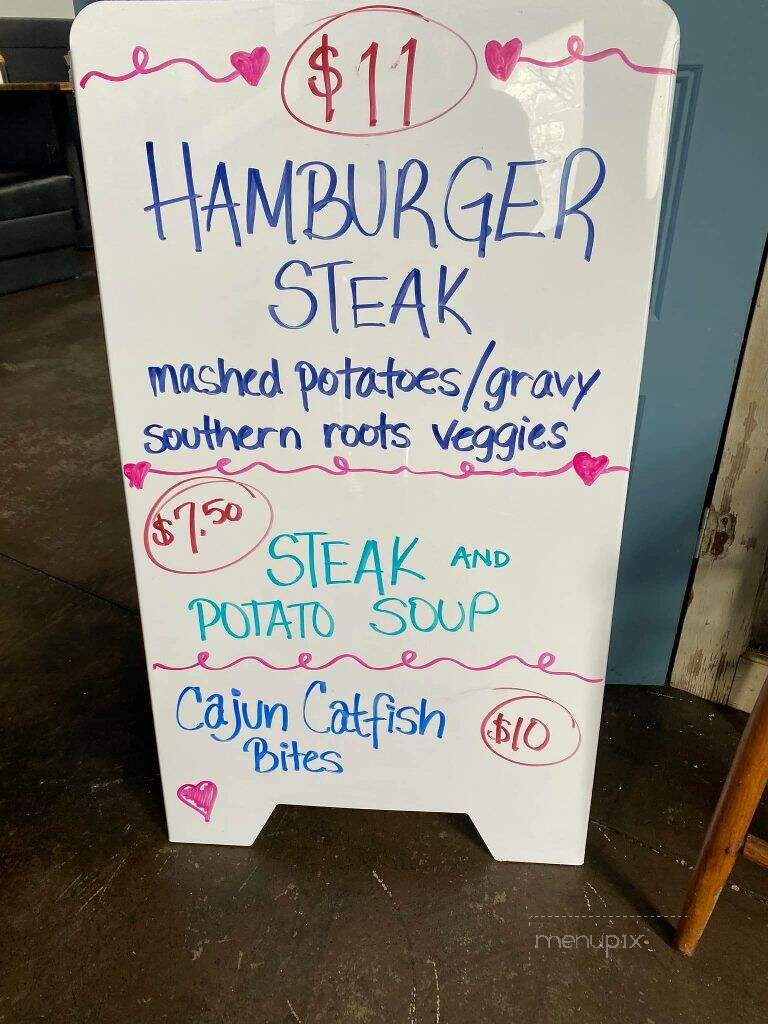 $11
HAMBURGER
STEAK
mashed potatoes/gravy
southern roots veggies
$7.50
STEAK AND
POTATO SOUP
Cajun Catfish
Bites
$10
menupix